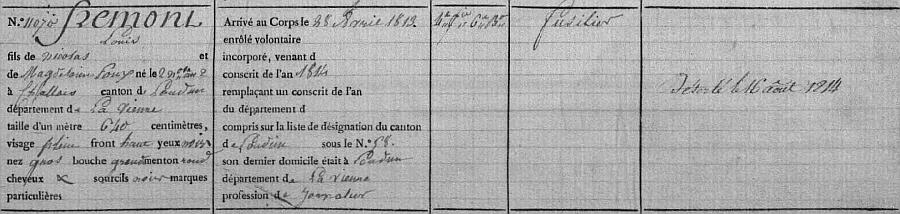 N.º 11070 Fremont
Louis
fils de nicolas et
de Magdelaine né le 2
à Challais canton d Loudun
département de La Vienne
taille d'un mètre 640 centimètres,
visage plein front haut yeux noir
nez gros bouche grande menton rond
cheveux & sourcils noirs marques
particulières
Arrivé au Corps le 28 Avril 1813
enrôlé volontaire
incorporé, venant d
conscrit de l'an 1814
remplaçant un conscrit de l'an
du département d
compris sur la liste de désignation du canton
de Loudun sous le N.º 58.
son dernier domicile était à Loudun
département de La Vienne
profession de Journalier
4e 6e Bon
fusilier
Déserté le 16 août 1814